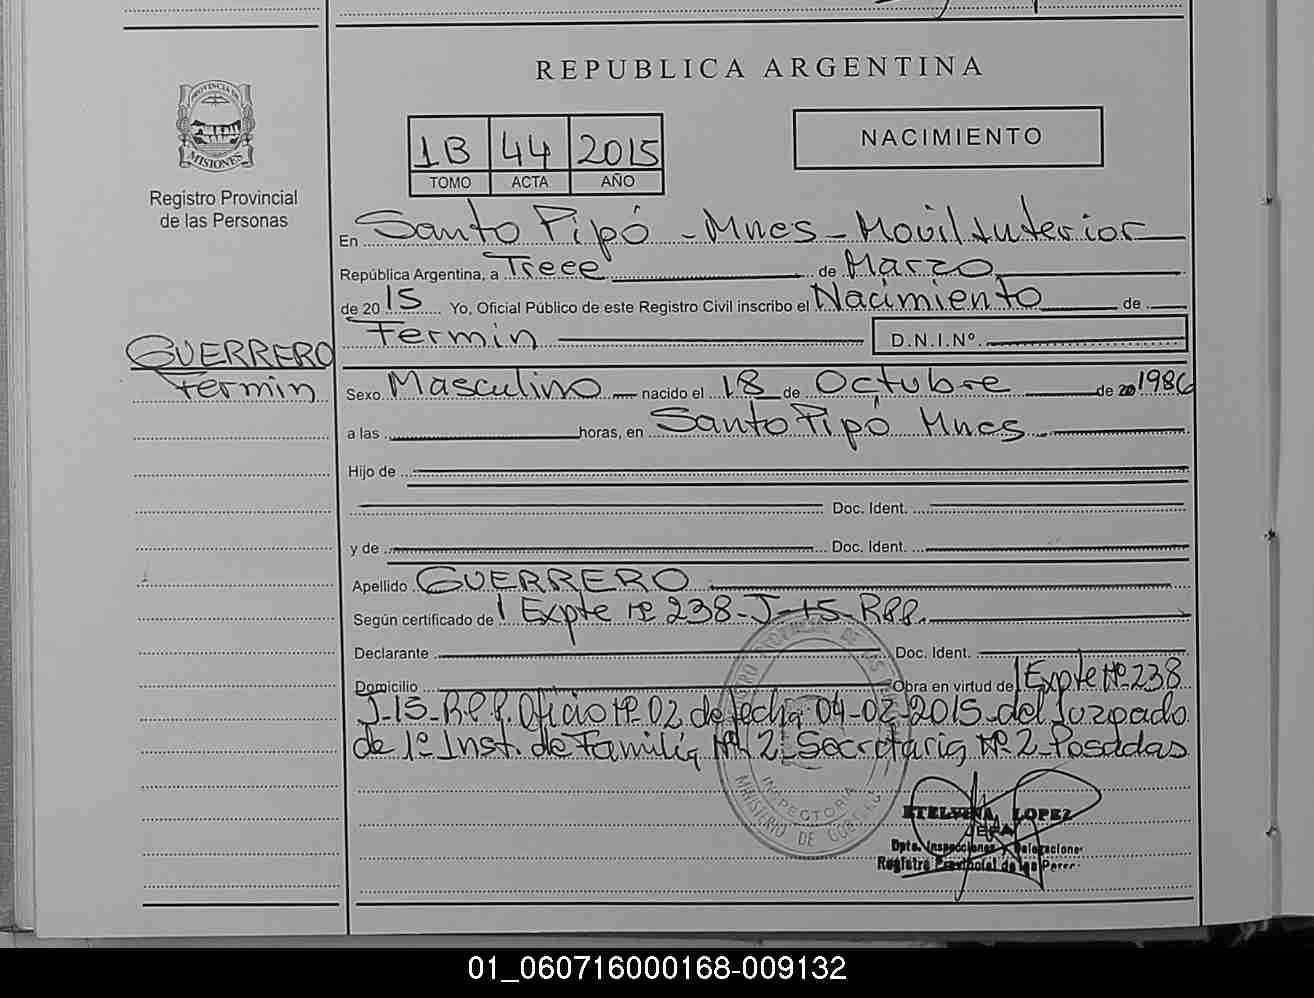 REPUBLICA ARGENTINA
PROVINCIA DE
MISIONES
Registro Provincial
de las Personas
1B 44 2015
TOMO ACTA AÑO
NACIMIENTO
En Santo Pipó - Mnes - Movil Interior
República Argentina, a Trece de Marzo
de 2015 Yo, Oficial Público de este Registro Civil inscribo el Nacimiento de
Fermin D.N.I.Nº
GUERRERO
Fermin
Sexo Masculino nacido el 18 de Octubre de 20 1986
a las horas, en Santo Pipó Mnes
Hijo de
Doc. Ident.
y de Doc. Ident.
Apellido GUERRERO
Según certificado de Expte Nº 238-J-15-RPP.
Declarante Doc. Ident.
Domicilio Obra en virtud de Expte Nº 238
J-15-RPP. Oficio Nº 02 de fecha 04-02-2015 del Juzgado
de 1º Inst. de Familia Nº 2 Secretaria Nº 2 Posadas
REGISTRO PROVINCIAL DE LAS
INSPECTORIA
MINISTERIO DE GOBIERNO
ETELVINA LOPEZ
JEFA
Dpto. Inspecciones y Delegacione
Registro Provincial de las Perso
01_060716000168-009132